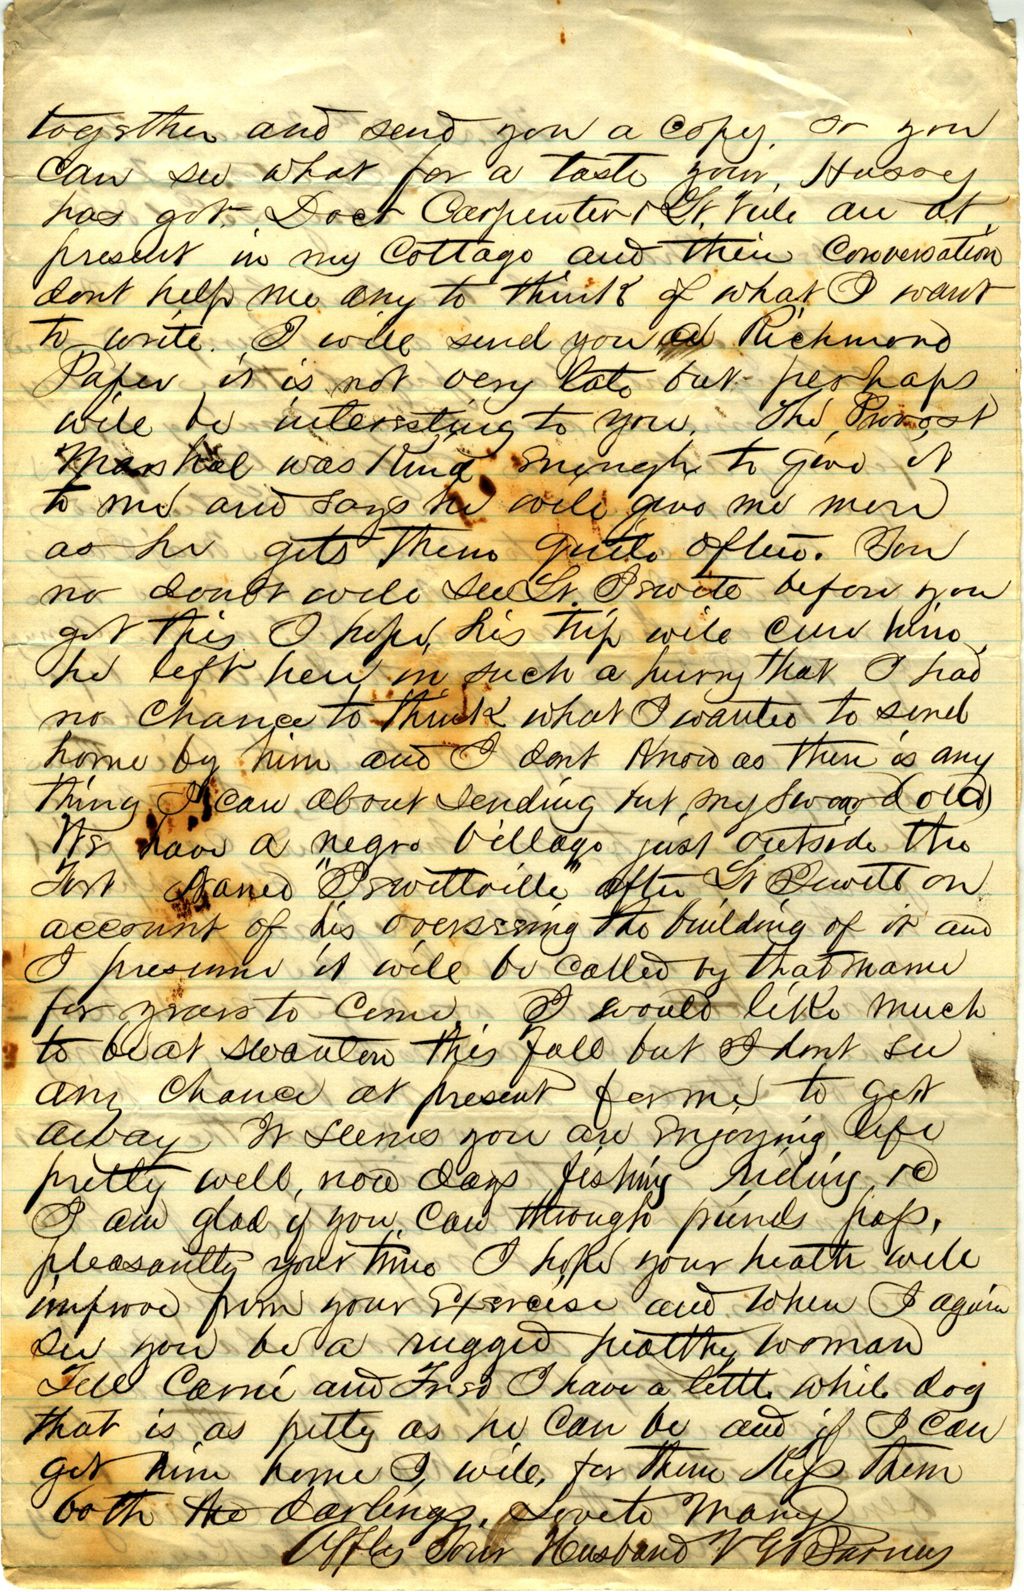 together and send you a copy, so you
can see what for a taste your, Hussey
has got. Doct Carpenter & Lt. are at,
present in my Cottage and their Conversation
dont help me any to think of what I want
to write. I will send you a Richmond
Paper it is not very late but perhaps
will be interesting to you. The, Provost
Marshal was kind enough to give it
to me and says he will give me more
as he gets them quite often. You
no doubt will see Lt. Prewitt before you
get this I hope, his trip will cure him,
he left here in such a hurry that I had
no chance to think what I wanted to send
home by him and I dont know as there is any
thing I care about sending but my Sword (old)
We have a negro Village just outside the
Fort Named "Prewittville" after Lt Prewitt on
account of his overseeing the building of it and
I presume it will be called by that name
for years to come I would like much
to be at Swanton this fall but I dont see
any chance at present for me to get
away It seems you are enjoying life
pretty well, now days fishing riding, &c
I am glad if you, can through friends pass,
pleasantly your time I hope your health will
improve from your Exercise and when I again
see you be a rugged healthy woman
Tell Carrie and Fred I have a little white dog
that is as pretty as he can be and if I can
get him home I, will, for them Kiss them
both the darlings, Love to Many
Affly Your Husband V G Barney